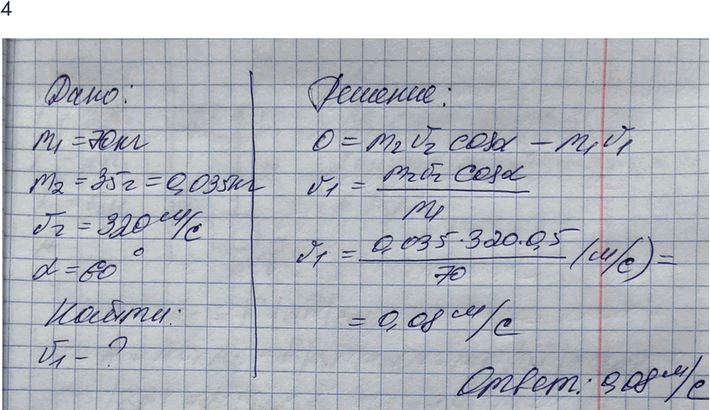 4
Дано:
m₁ = 70 кг
m₂ = 35 г = 0,035 кг
v₂ = 320 м/с
α = 60°
Найти:
v₁ - ?
Решение:
0 = m₂v₂ cosα - m₁v₁
v₁ = m₂v₂ cosα / m₁
v₁ = 0,035·320·0,5 / 70 (м/с) =
= 0,08 м/с
Ответ: 0,08 м/с